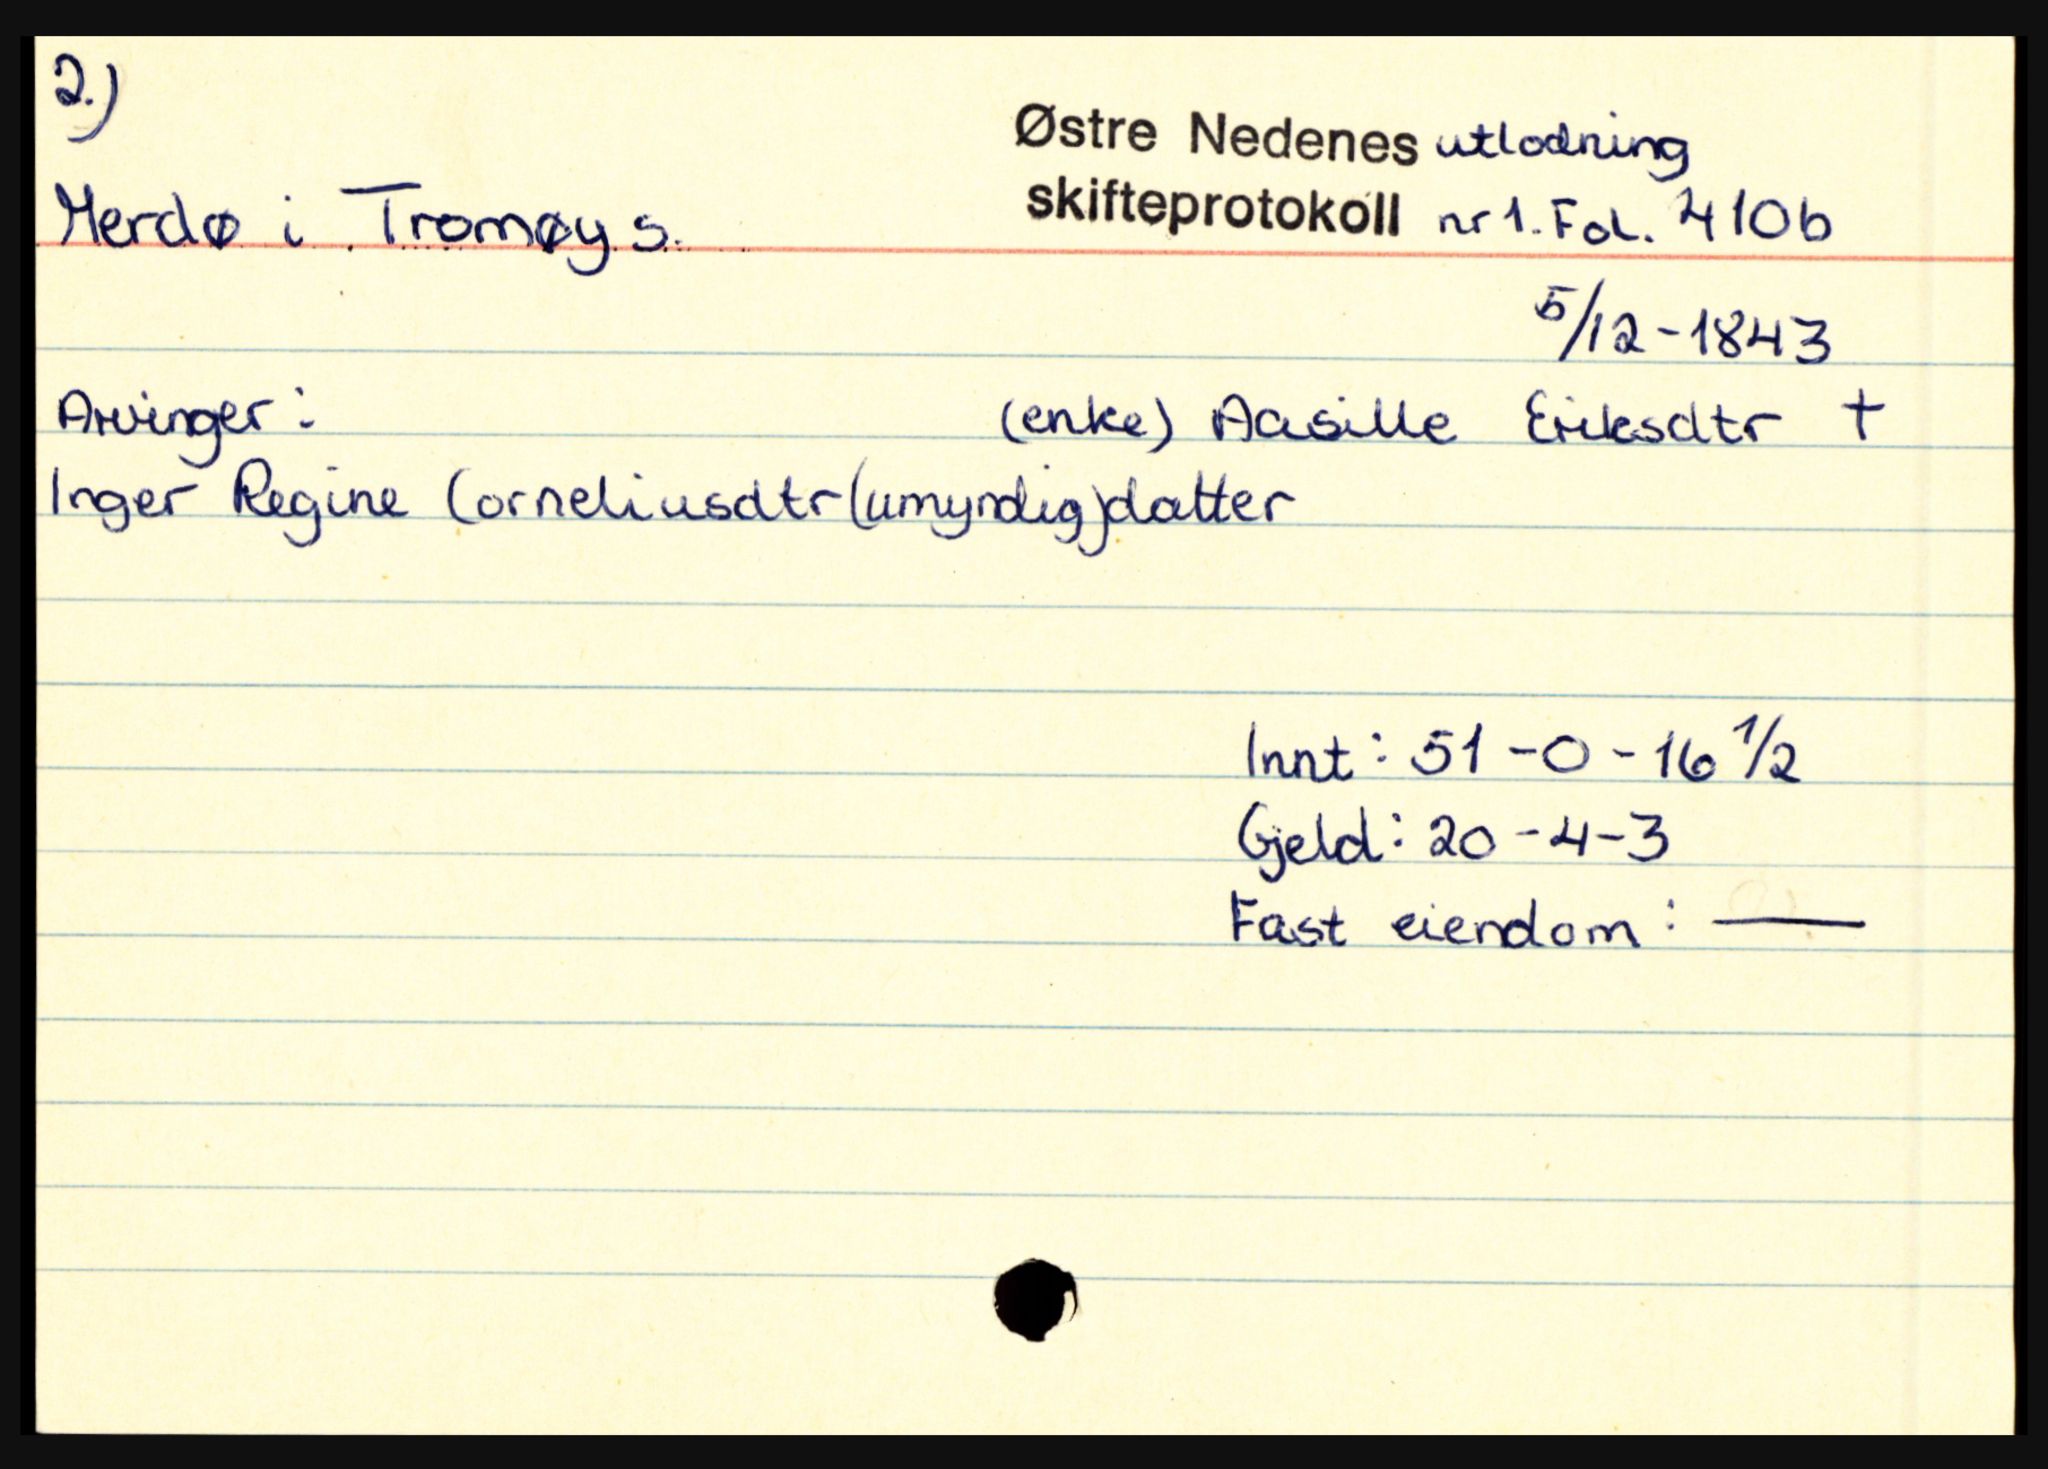 2.)
Østre Nedenes utlodning
Merdø i Tromøy s. skifteprotokoll nr 1. Fol. 410b
5/12-1843
Arvinger: (enke) Aasille Eriksdtr +
Inger Regine Corneliusdtr (umyndig) datter
Innt: 51-0-16 1/2
Gjeld: 20-4-3
Fast eiendom: —